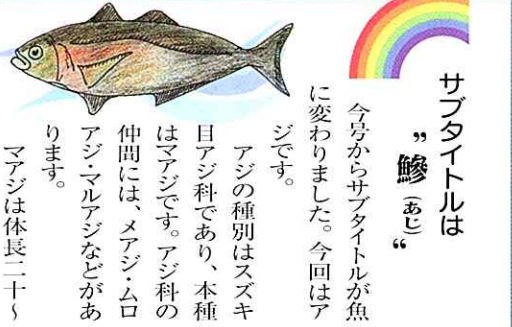 サブタイトルは
〝鰺(あじ)〟
今号からサブタイトルが魚
に変わりました。今回はア
ジです。
アジの種別はスズキ
目アジ科であり、本種
はマアジです。アジ科の
仲間には、メアジ・ムロ
アジ・マルアジなどがあ
ります。
マアジは体長二十~